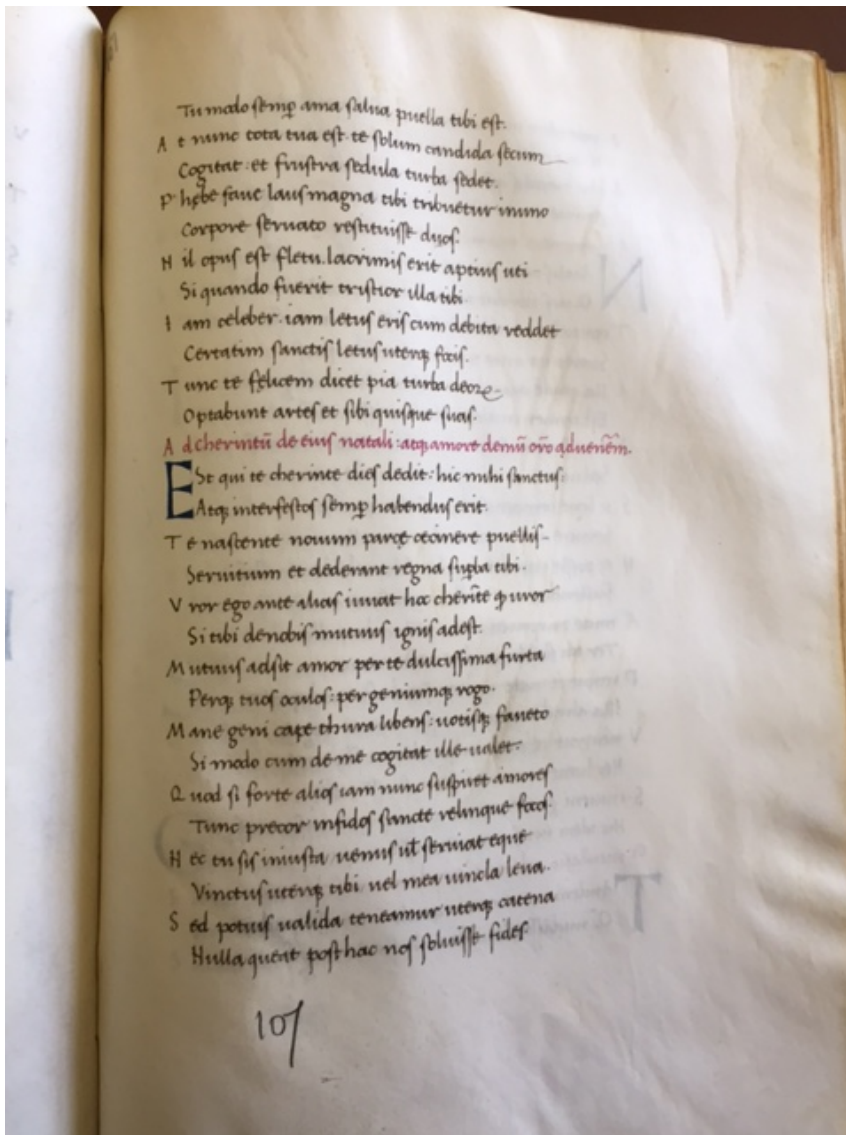 Tu modo semꝑ ama salua puella tibi est.
A t nunc tota tua est. te solum candida secum
Cogitat: et frustra sedula turba sedet.
P hębe faue laus magna tibi tribuetur in uno
Corpore seruato restituisse duos.
N il opus est fletu. lacrimis erit aptius uti
Si quando fuerit tristior illa tibi
I am celeber. iam letus eris cum debita reddet
Certatim sanctis letus uterq focis.
T unc te fęlicem dicet pia turba deoꝝ
Optabunt artes et sibi quisque suas.
A d cherintū de eius natali: atq amore
ESt qui te cherinte dies dedit: hic mihi sanctus:
Atq inter festos semꝑ habendus erit.
T e nascente nouum parcę cecinere puellis
Seruitium et dederant regna suꝑba tibi.
V ror ego ante alias iuuat hoc cherīte ꝙ uror
Si tibi de nobis mutuus ignis adest.
M utuus adsit amor per te dulcissima furta
Perq tuos oculos: per geniumq rogo.
M ane geni cape thura libens: uotisq faueto
Si modo cum de me cogitat ille ualet.
Q uod si forte alios iam nunc suspiret amores
Tunc precor infidos sancte relinque focos.
N ec tu sis iniusta uenus uł seruiat eque
Vinctus uterq tibi uel mea uincla leua.
S ed potius ualida teneamur uterq catena
Nulla queat post hac nos soluisse fides.
107